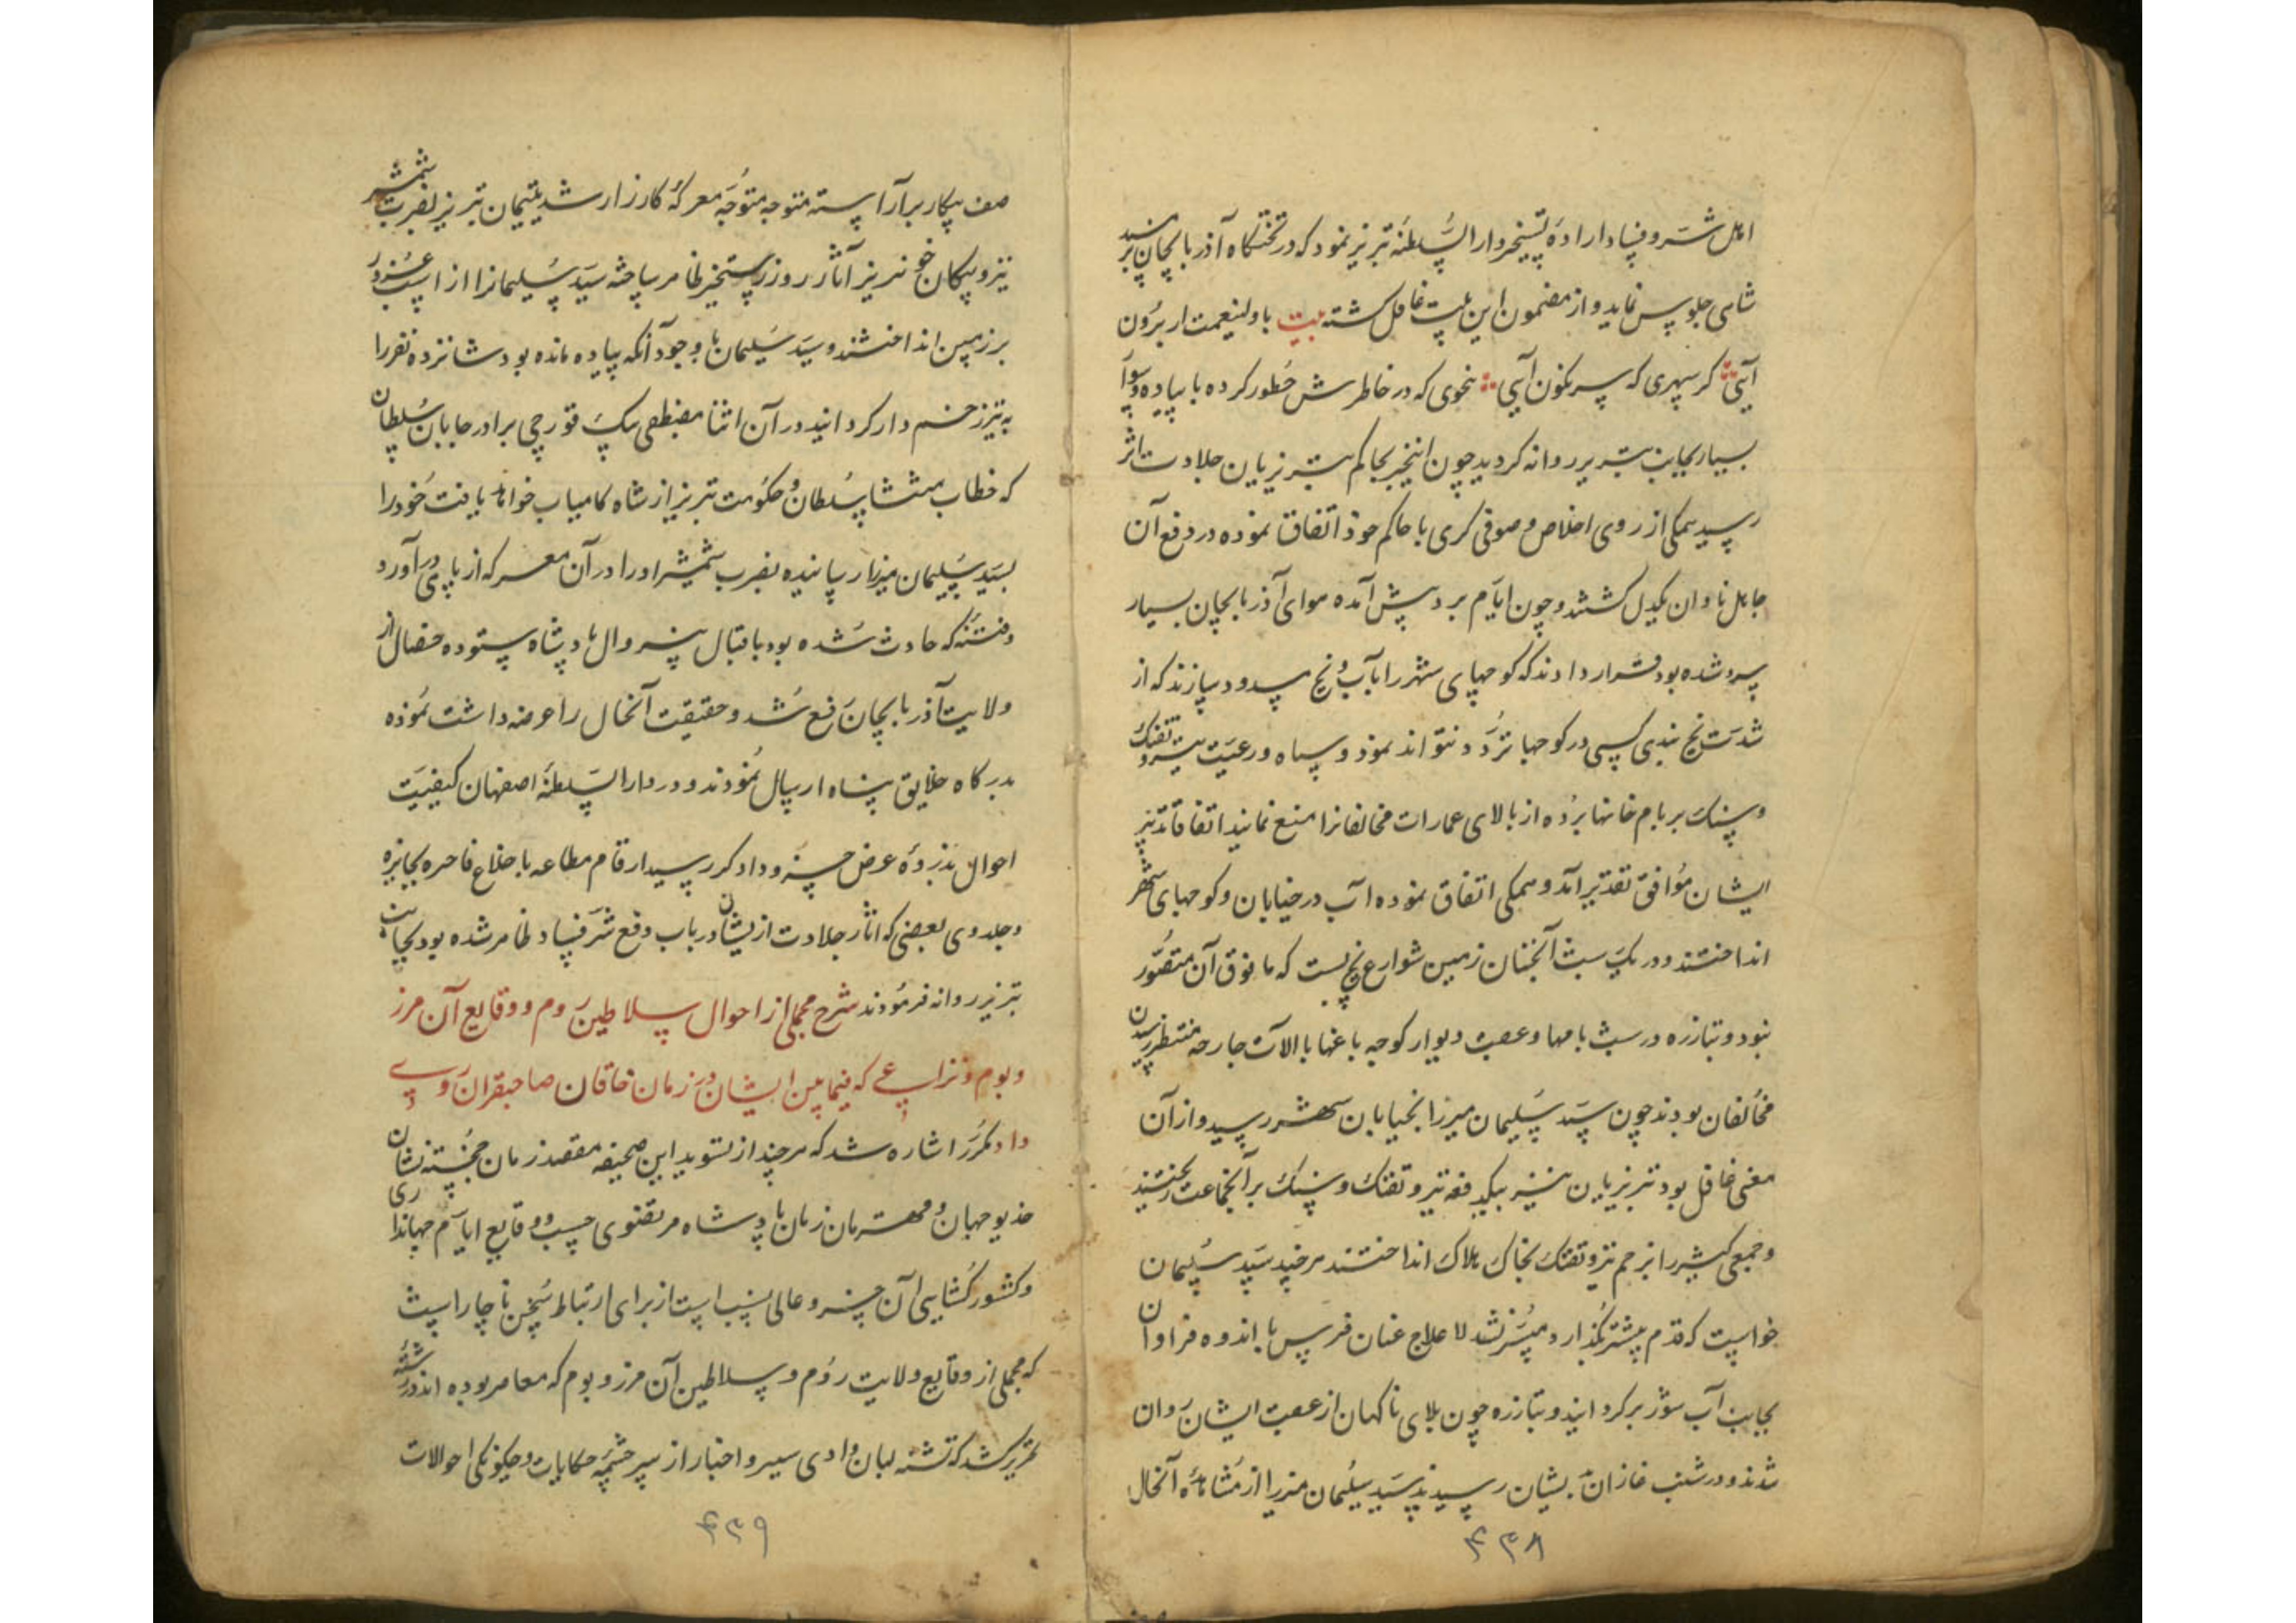 اهل شر و فساد اراده تسخیر دار السلطنه تبریز نمود که در تختگاه آذربایجان بر مسند
شاهی جلوس نماید و از مضمون این بیت غافل گشته بیت با ولینعمت ار برون
آیی گر سپهری که سرنگون آیی بنحوی که در خاطرش خطور کرده با پیاده و سوار
بسیار بجانب تبریز روانه گردید چون اینخبر بحاکم تبریزیان جلادت اثر
رسید همگی از روی اخلاص و صوفی گری با حاکم خود اتفاق نموده در دفع آن
جاهل نادان یکدل گشتند و چون ایام برد پیش آمده هوای آذربایجان بسیار
سرد شده بود قرار دادند که کوچهای شهر را بآب و یخ مسدود سازند که از
شدت یخ بندی کسی در کوچها تردد نتواند نمود و سپاه و رعیت تیر و تفنک
و سنک بر بام خانها برده از بالای عمارات مخالفانرا منع نمایند اتفاقا تدبیر
ایشان موافق تقدیر آمد و همگی اتفاق نموده آب در خیابان و کوچهای شهر
انداختند و در یک شب آنچنان زمین شوارع یخ بست که ما فوق آن متصور
نبود و تبارزه در پشت بامها و عقب دیوار کوچه باغها با الات جارحه منتظر رسیدن
مخالفان بودند چون سید سلیمان میرزا بخیابان شهر رسید و از آن
معنی غافل بود تبریزیان نیز بیکدفعه تیر و تفنک و سنک بر آنجماعت ریختند
و جمعی کثیر را بزخم تیر و تفنک بخاک هلاک انداختند هر چند سید سلیمان
خواست که قدم پیشتر گذارد میسر نشد لا علاج عنان فرس با اندوه فراوان
بجانب آب شور برگردانید و تبارزه چون بلای ناگهان از عقب ایشان روان
شدند و در شنب غازان بدیشان رسیدند سید سلیمان میرزا از مشاهده آنحال
۴۳۸
صف پیکار بر آراسته متوجه متوجه معرکه کارزار شد یتیمان تبریز بضرب شمشیر
تیز و پیکان خونریز آثار روز رستخیز ظاهر ساخته سید سلیمانرا از اسب
بر زمین انداختند و سید سلیمان با وجود آنکه پیاده مانده بود شانزده نفر را
به تیر زخم دار گردانید در آن اثنا مصطفی بیک قورچی برادر سلطان
که خطاب منتشا سلطان و حکومت تبریز از شاه کامیاب خواهد یافت خود را
بسید سلیمان میرزا رسانیده بضرب شمشیر او را در آن معرکه از پای در آورد
و فتنه که حادث شده بود باقبال بیزوال پادشاه ستوده خصال از
ولایت آذربایجان رفع شد و حقیقت آنحال را عرضه داشت نموده
بدرگاه خلایق پناه ارسال نمودند و در دار السلطنه اصفهان کیفیت
احوال بذروه عرض خسرو دادگر رسید ارقام مطاعه با خلاع فاخره بجایزه
و جلدوی بعضی که اثار جلادت از یشان در باب دفع شر فساد ظاهر شده بود بجانب
تبریز روانه فرمودند شرح مجملی از احوال سلاطین روم و وقایع آن مرز
و بوم و نزاعی که فیمابین ایشان در زمان خاقان صاحبقران روی
داد مکرر اشاره شد که هر چند از تسوید این صحیفه مقصد زمان خجسته نشان
خدیو جهان و قهرمان زمان پادشاه مرتضوی حسب و وقایع ایام جهانداری
و کشور گشایی آن خسرو عالی نسب است از برای ارتباط سخن ناچار است
که مجملی از وقایع ولایت روم و سلاطین آن مرز و بوم که معاصر بوده اند در رشته
تحریر کشد که تشنه لبان وادی سیر و اخبار از سر چشمه حکایات و چگونگی احوالات
۴۳۹